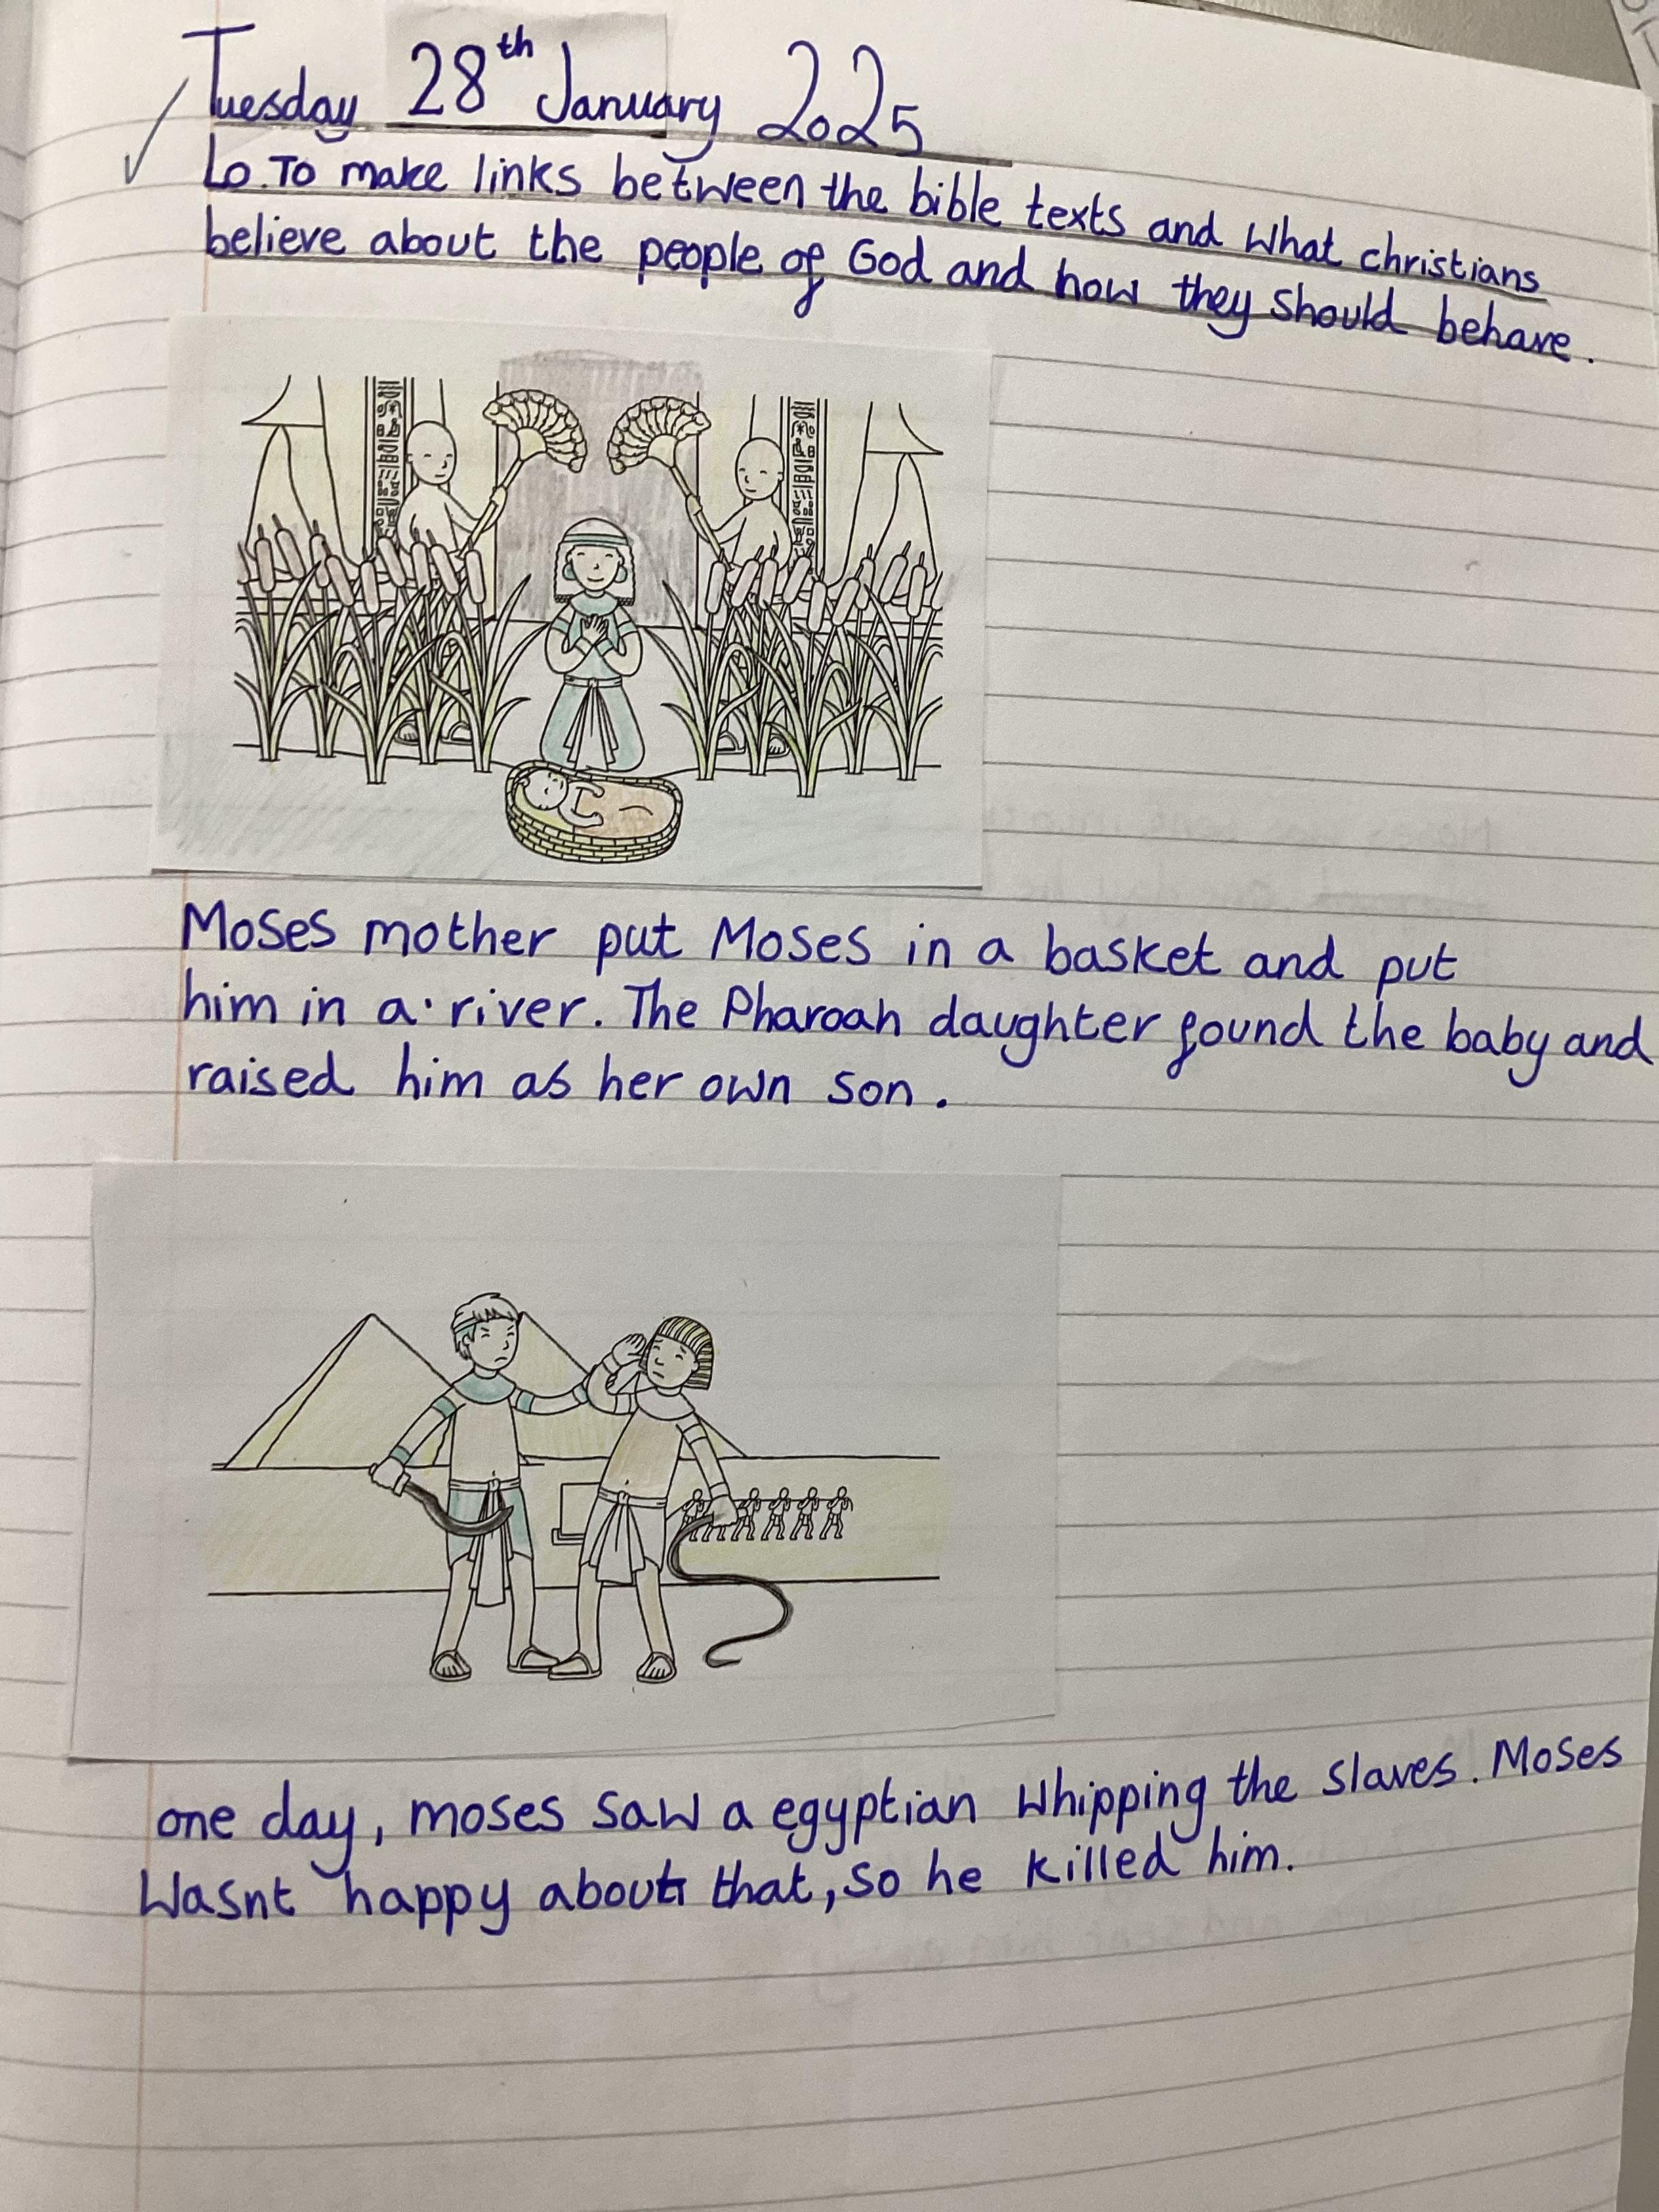 Tuesday 28th January 2025
Lo. To make links between the bible texts and what christians
believe about the people of God and how they should behave.
Moses mother put Moses in a basket and put
him in a river. The Pharoah daughter found the baby and
raised him as her own son.
one day, moses saw a egyptian whipping the slaves. Moses
wasnt happy about that, so he killed him.